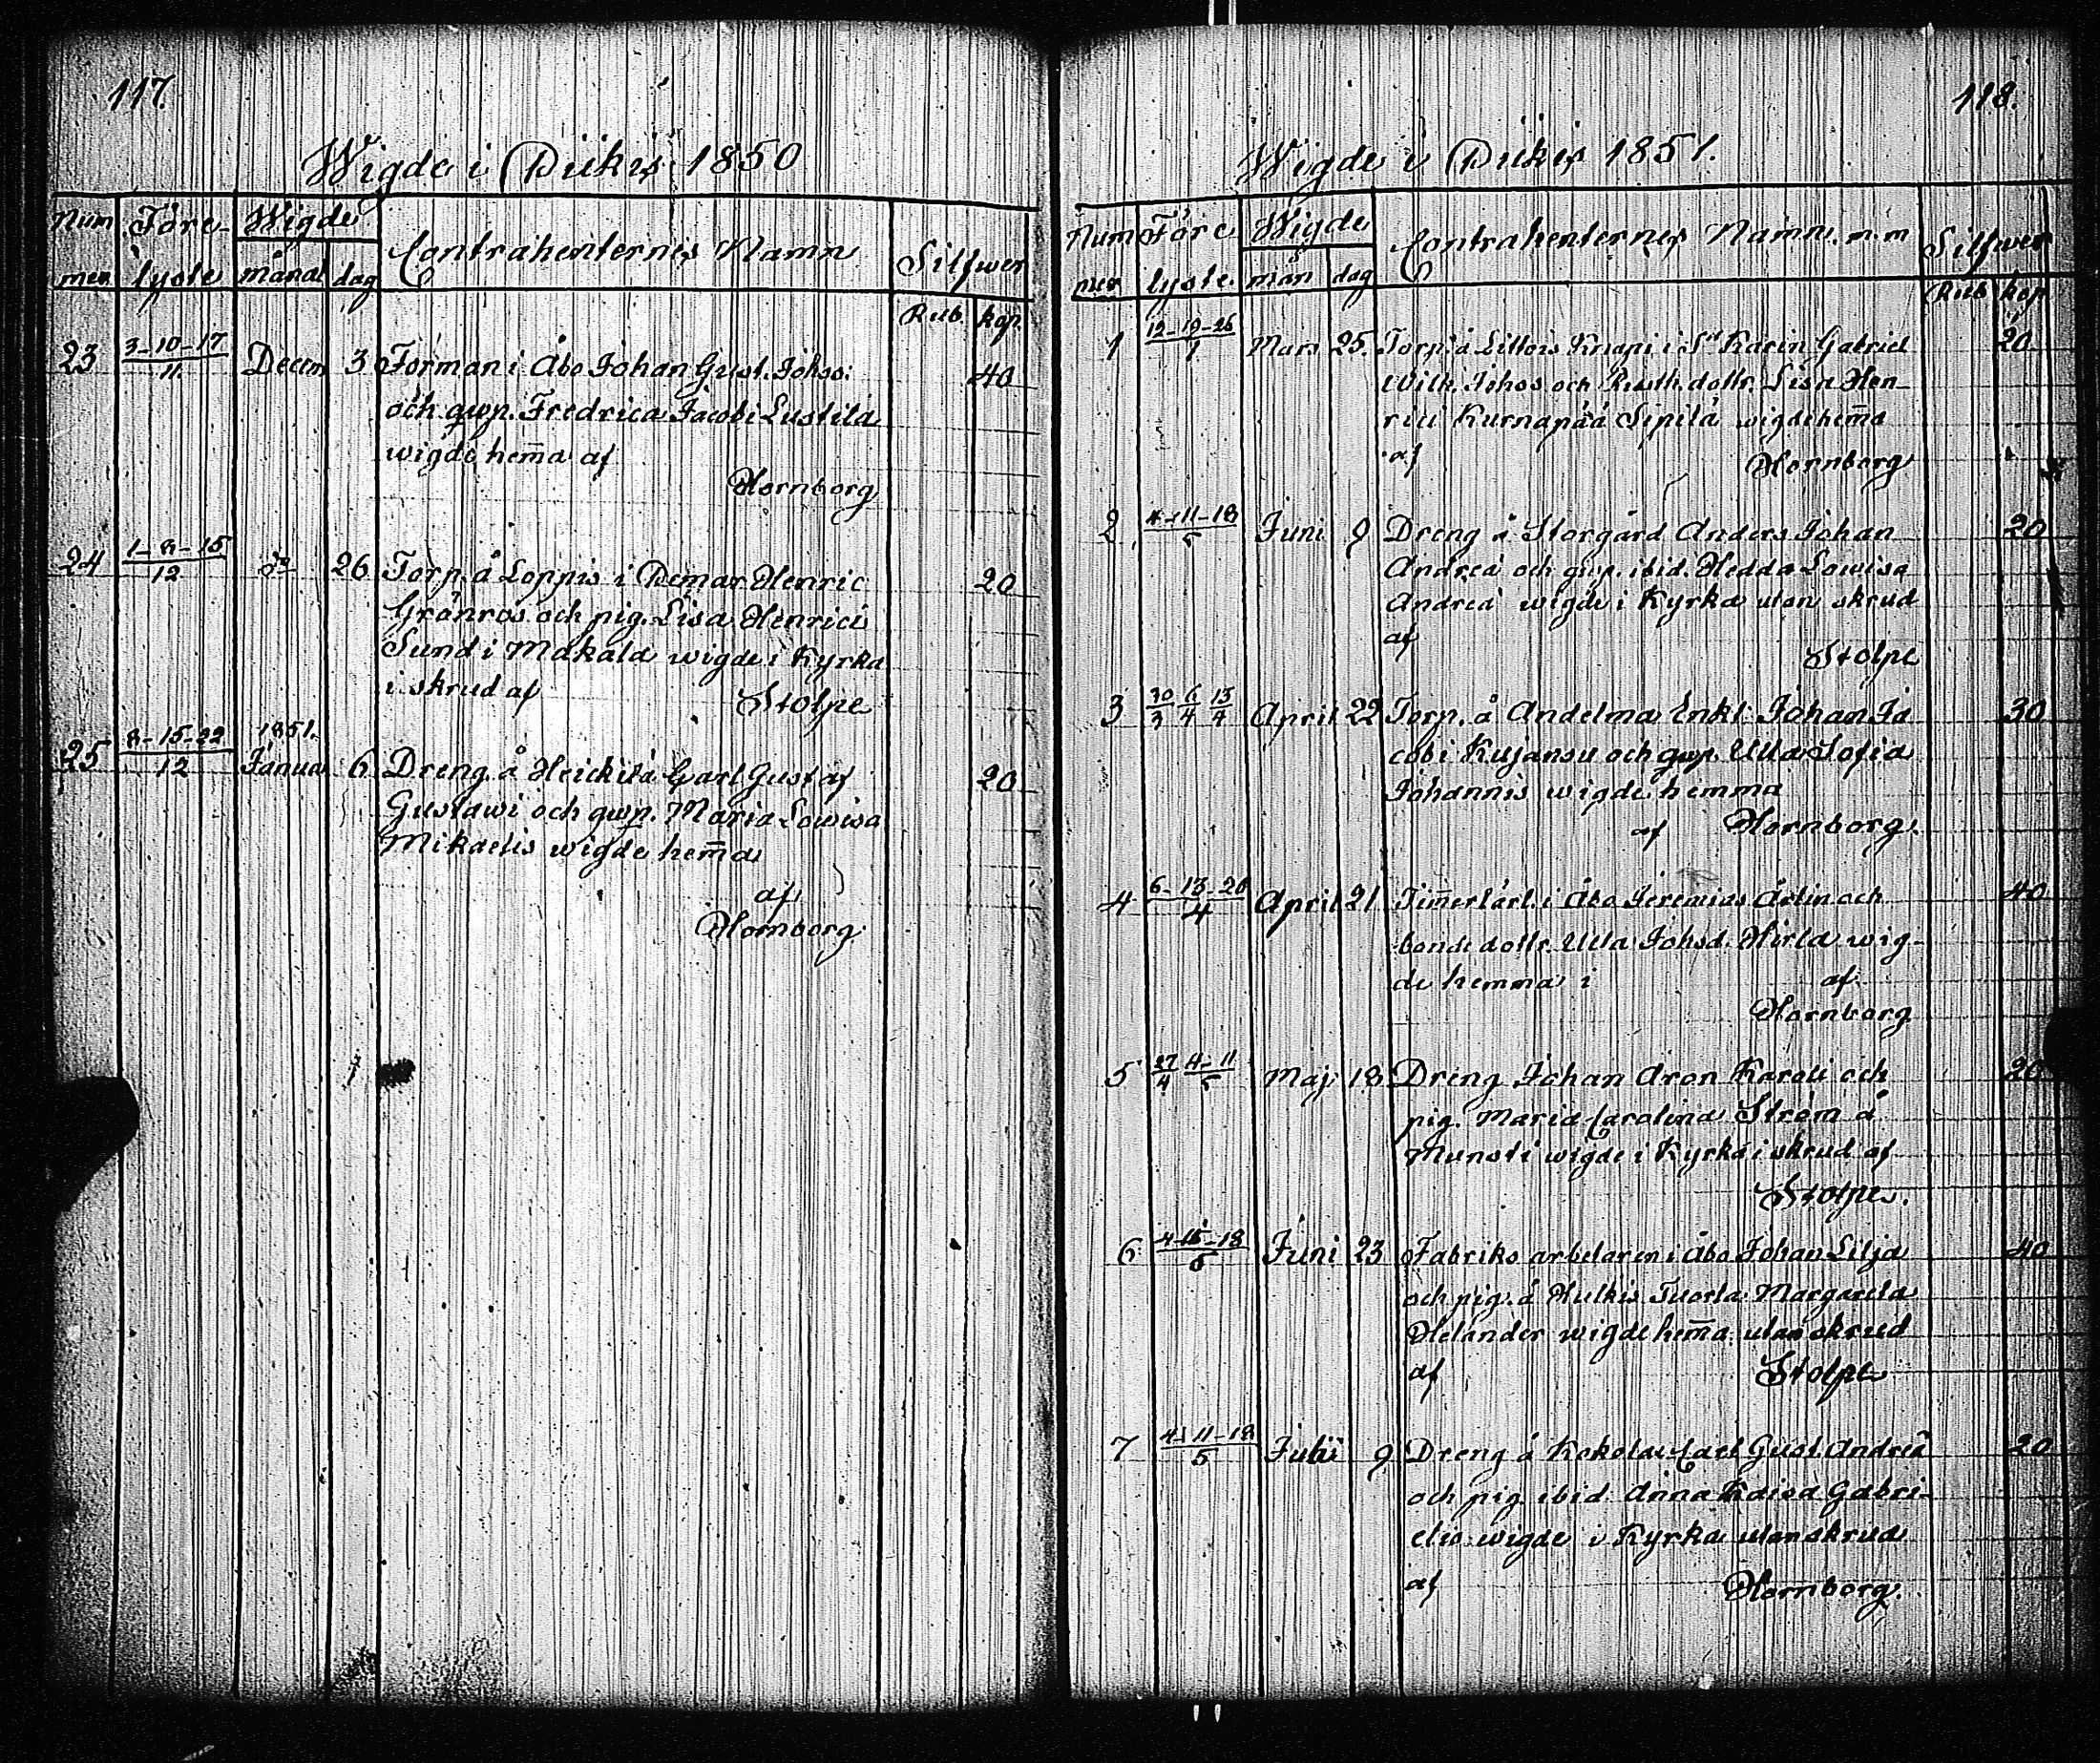 117.
Wigde i Piikis 1850
Num Före- Wigde Contrahenternes Namn Silfwer
mer lyste månad dag
Rub. kop.
23 3-10-17/11 Decem 3 Förman i Åbo Johan Gust. Johss: 40
och qwp. Fredrica Jacobi Lustila
wigde hem̄a af
Hornborg
24 1-8-15/12 do 26 Torp. å Loppis i Pemar Henric 20
Grönros och pig. Lisa Henrici
Sund i Makala wigde i Kyrka
i skrud af Stolpe
1851.
25 8-15-22/12 Januar 6 Dreng å Heickilä Carl Gustaf 20
Gustawi och qwp. Maria Lowisa
Mikaelis wigde hem̄a
af
Hornborg
118.
Wigde i Piikis 1851.
Num Före Wigde Contrahenternes Namn. m.m Silfwer
mer lyste mån dag
Rub kop
1 12-19-26/1 Mars 25. Torp. å Littois Knapi i St Karin Gabriel 20
Wilh. Johss och Rusth. dottr. Lisa Hen
rici Kurnapää Sipilä wigde hem̄a
af Hornborg
2 4-11-18/5 Juni 9 Dreng å Storgård Anders Johan 20
Andreä och qwp. ibid. Hedda Lowisa
Andreä wigde i Kyrka utan skrud
af
Stolpe
3 30/3 6/4 13/4 April 22 Torp. å Andelma Enkl. Johan Ja 30
cobi Kujansu och qwp. Ulla Sofia
Johannis wigde hemma
af Hornborg.
4 6-13-20/4 April 21 i Åbo Jeremias och 40
bonde dottr. Ulla Johsd. wig-
de hemma i af
Hornborg
5 27/4 4-11/5 Maj 18 Dreng Johan Aron Karoli och 20
pig. Maria Carolina Ström å
Runsti wigde i Kyrka i skrud af
Stolpe.
6 /5 Juni 23 Fabriks arbetaren i Åbo Johan Lilja 40
och pig. å Hulkis Tuorla Margareta
Helander wigde hem̄a utan skrud
af Stolpe
7 4-11-18/5 9 Dreng å Kokola Carl Gust. Andreä 20
och pig ibid Anna Kaisa Gabri-
elis wigde i Kyrka utan skrud
af Hornborg.